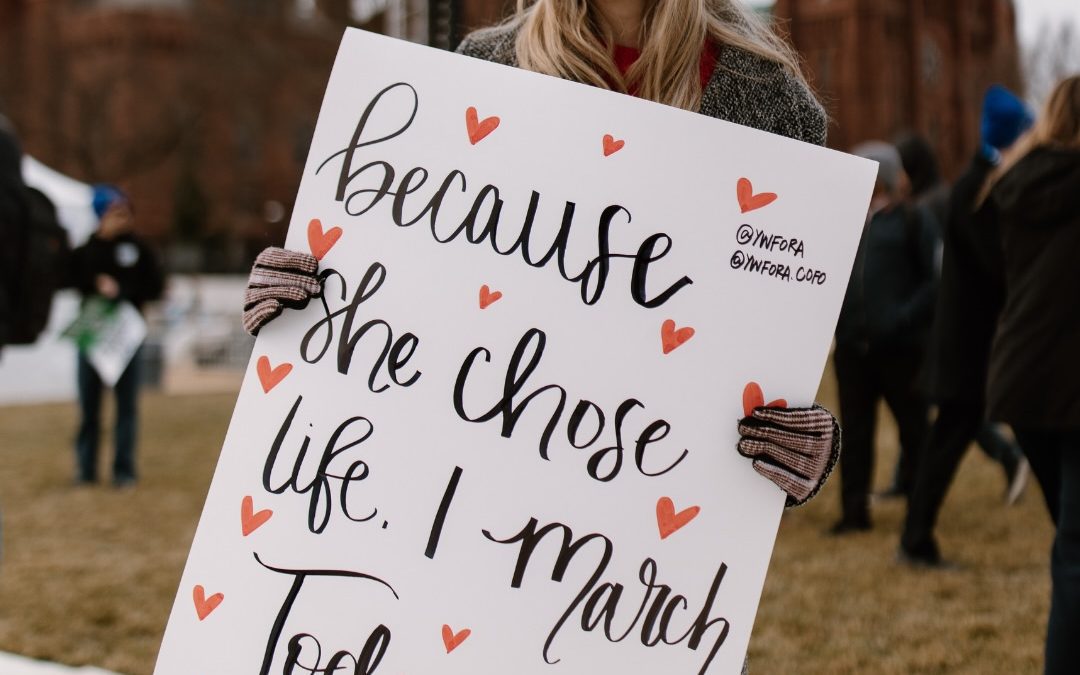 because
@YWFORA
@YWFORA.COFO
she chose
life. I march